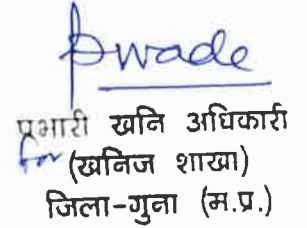 प्रभारी खनि अधिकारी
for (खनिज शाखा)
जिला-गुना (म.प्र.)